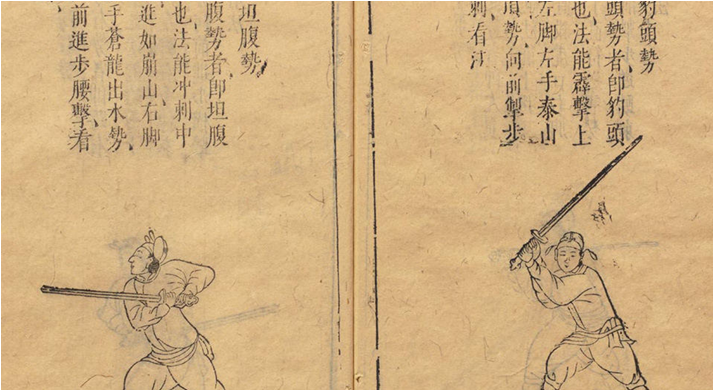 豹頭勢
頭勢者卽豹頭
也法能霹擊上
左脚左手泰山
頂勢向前掣步
刺看法
坦腹勢
腹勢者卽坦腹
也法能冲刺中
進如崩山右脚
手蒼龍出水勢
前進步腰擊看